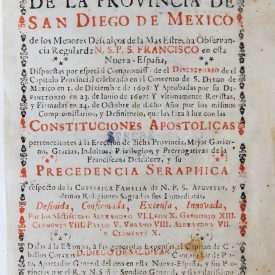 DE LA PROVINCIA DE
SAN DIEGO DE MEXICO
de los Menores Descalços de la Mas Estrecha Observan
cia Regular de N. S. P. S. FRANCISCO en esta
Nueva-España,
Dispuestas por especial Compromiss de el DISCRETORIO de el
Capitulo Provincial celebrado en el Convento de S. Diego de
Mexico en 1. de Diziembre de y Aprobadas por su DI-
FINITORIO en 23. de Junio de 1697. Y vltimamente Revistas,
y Firmadas en 24. de Octubre de dicho Año por los mismos
Compromissarios, y Definitorio, que las saca à luz con las
CONSTITUCIONES APOSTOLICAS
pertenecientes à la Direccion de dicha Provincia, Mayor Govier-
no, Gracias, Indultos, Privilegios y Prerrogativas de la
Franciscana Descalcez, y su
PRECEDENCIA SERAPHICA
respecto de la FAMILIA DE N. P. S. AGUSTIN, y
demas Religiones Sagradas sus
Confirmada, Extensa, Innovada,
Por los ALEXANDRO VI. LEON X. GREGORIO XIII.
CLEMENTE VIII. PAULO V. URBANO VIII. ALEXANDRO VII.
Y CLEMENTE X.
Dalas à la Estampa, à sus expensas, el Capitan de Ca-
ballos D. DIEGO DE SALDVYAR,
General del oro en esta Nueva-España, y Sin-